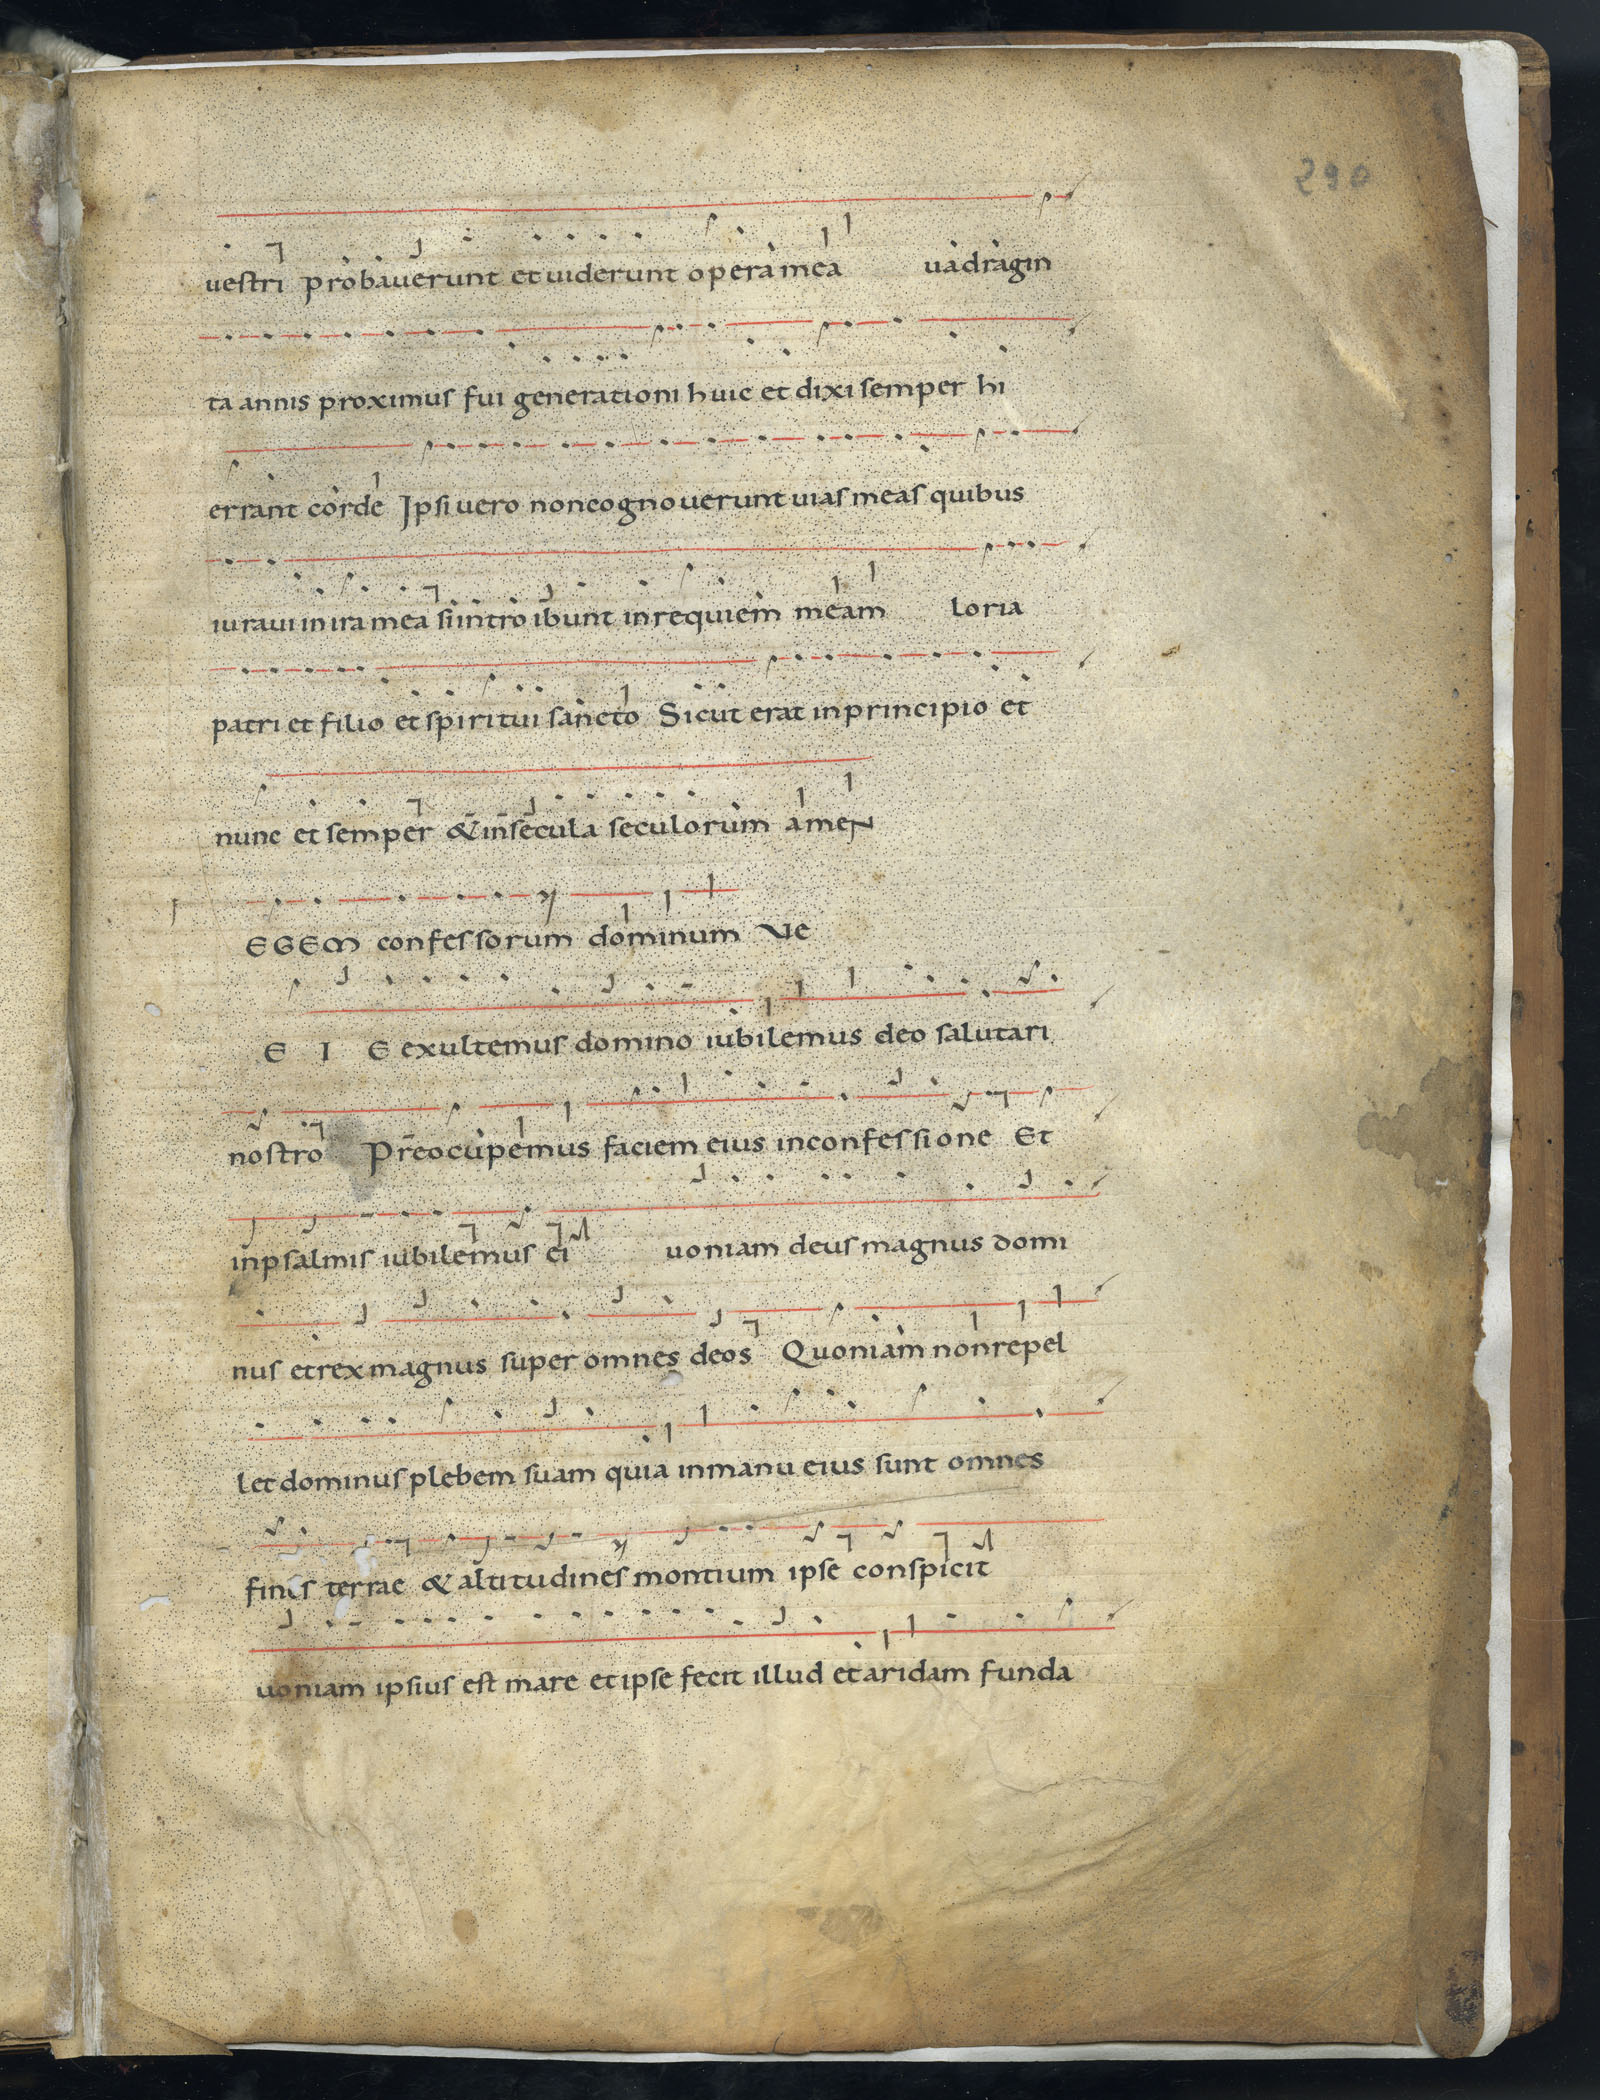 290
vestri probaverunt et viderunt opera mea vadragin
ta annis proximus fui generationi huic et dixi semper hi
errant corde Ipsi vero non cognoverunt vias meas quibus
iuravi in ira mea si introibunt in requiem meam loria
patri et filio et spiritui sancto Sicut erat in principio et
nunc et semper & in secula seculorum amen
EGEM confessorum dominum Ve
E I E exultemus domino iubilemus deo salutari
nostro Preocupemus faciem eius in confessione Et
in psalmis iubilemus ei uoniam deus magnus domi
nus et rex magnus super omnes deos Quoniam non repel
let dominus plebem suam quia in manu eius sunt omnes
fines terrae & altitudines montium ipse conspicit
uoniam ipsius est mare et ipse fecit illud et aridam funda